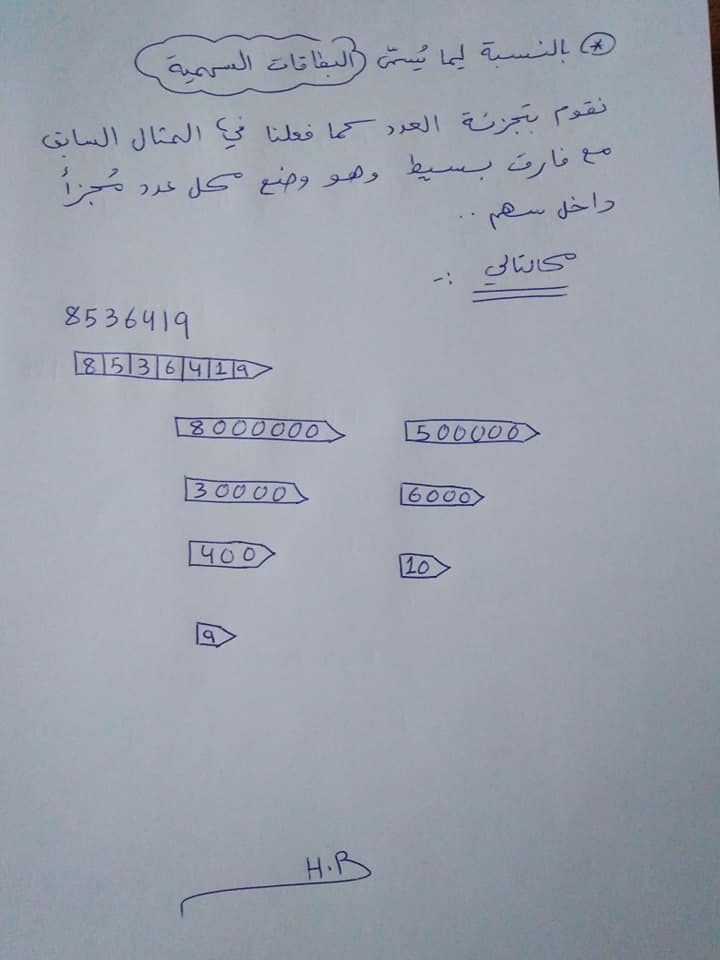 * بالنسبة لِما يُسمّى البطاقات السهمية
نقوم بتجزئة العدد كما فعلنا في المثال السابق
مع فارق بسيط وهو وضع كل عدد مُجزأ
داخل سهم ..
كالتالي :-
8536419
8 5 3 6 4 1 9
8000000 500000
30000 6000
400 10
9
H.B